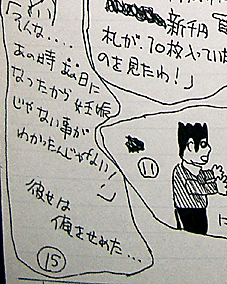 新千円
札が、70枚入ってい
のを見たわ!」
「そんな....
あの時 あの日に
なったから妊娠
じゃない事が
わかったんじゃない
!」
彼女は
俺をせめた...
⑮
⑪
に